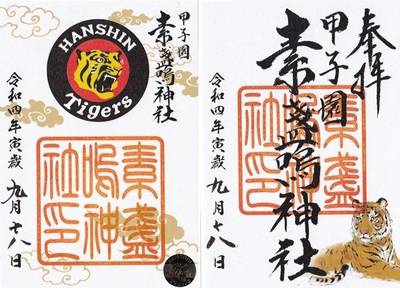 HANSHIN
Tigers
甲子園
素盞嗚神社
令和四年寅歳 九月十八日
素盞
嗚神
社印
奉拝
甲子園
素盞嗚神社
令和四年寅歳 九月十八日
素盞
嗚神
社印